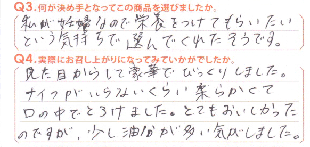 Q3.何が決め手となってこの商品を選びましたか。
私が妊婦なので栄養をつけてもらいたい
という気持ちで選んでくれたそうです。
Q4.実際にお召し上がりになってみていかがでしたか。
見た目からして豪華でびっくりしました。
ナイフがいらないくらい柔らかくて
口の中でとろけました。とてもおいしかった
のですが、少し油かが多い気がしました。